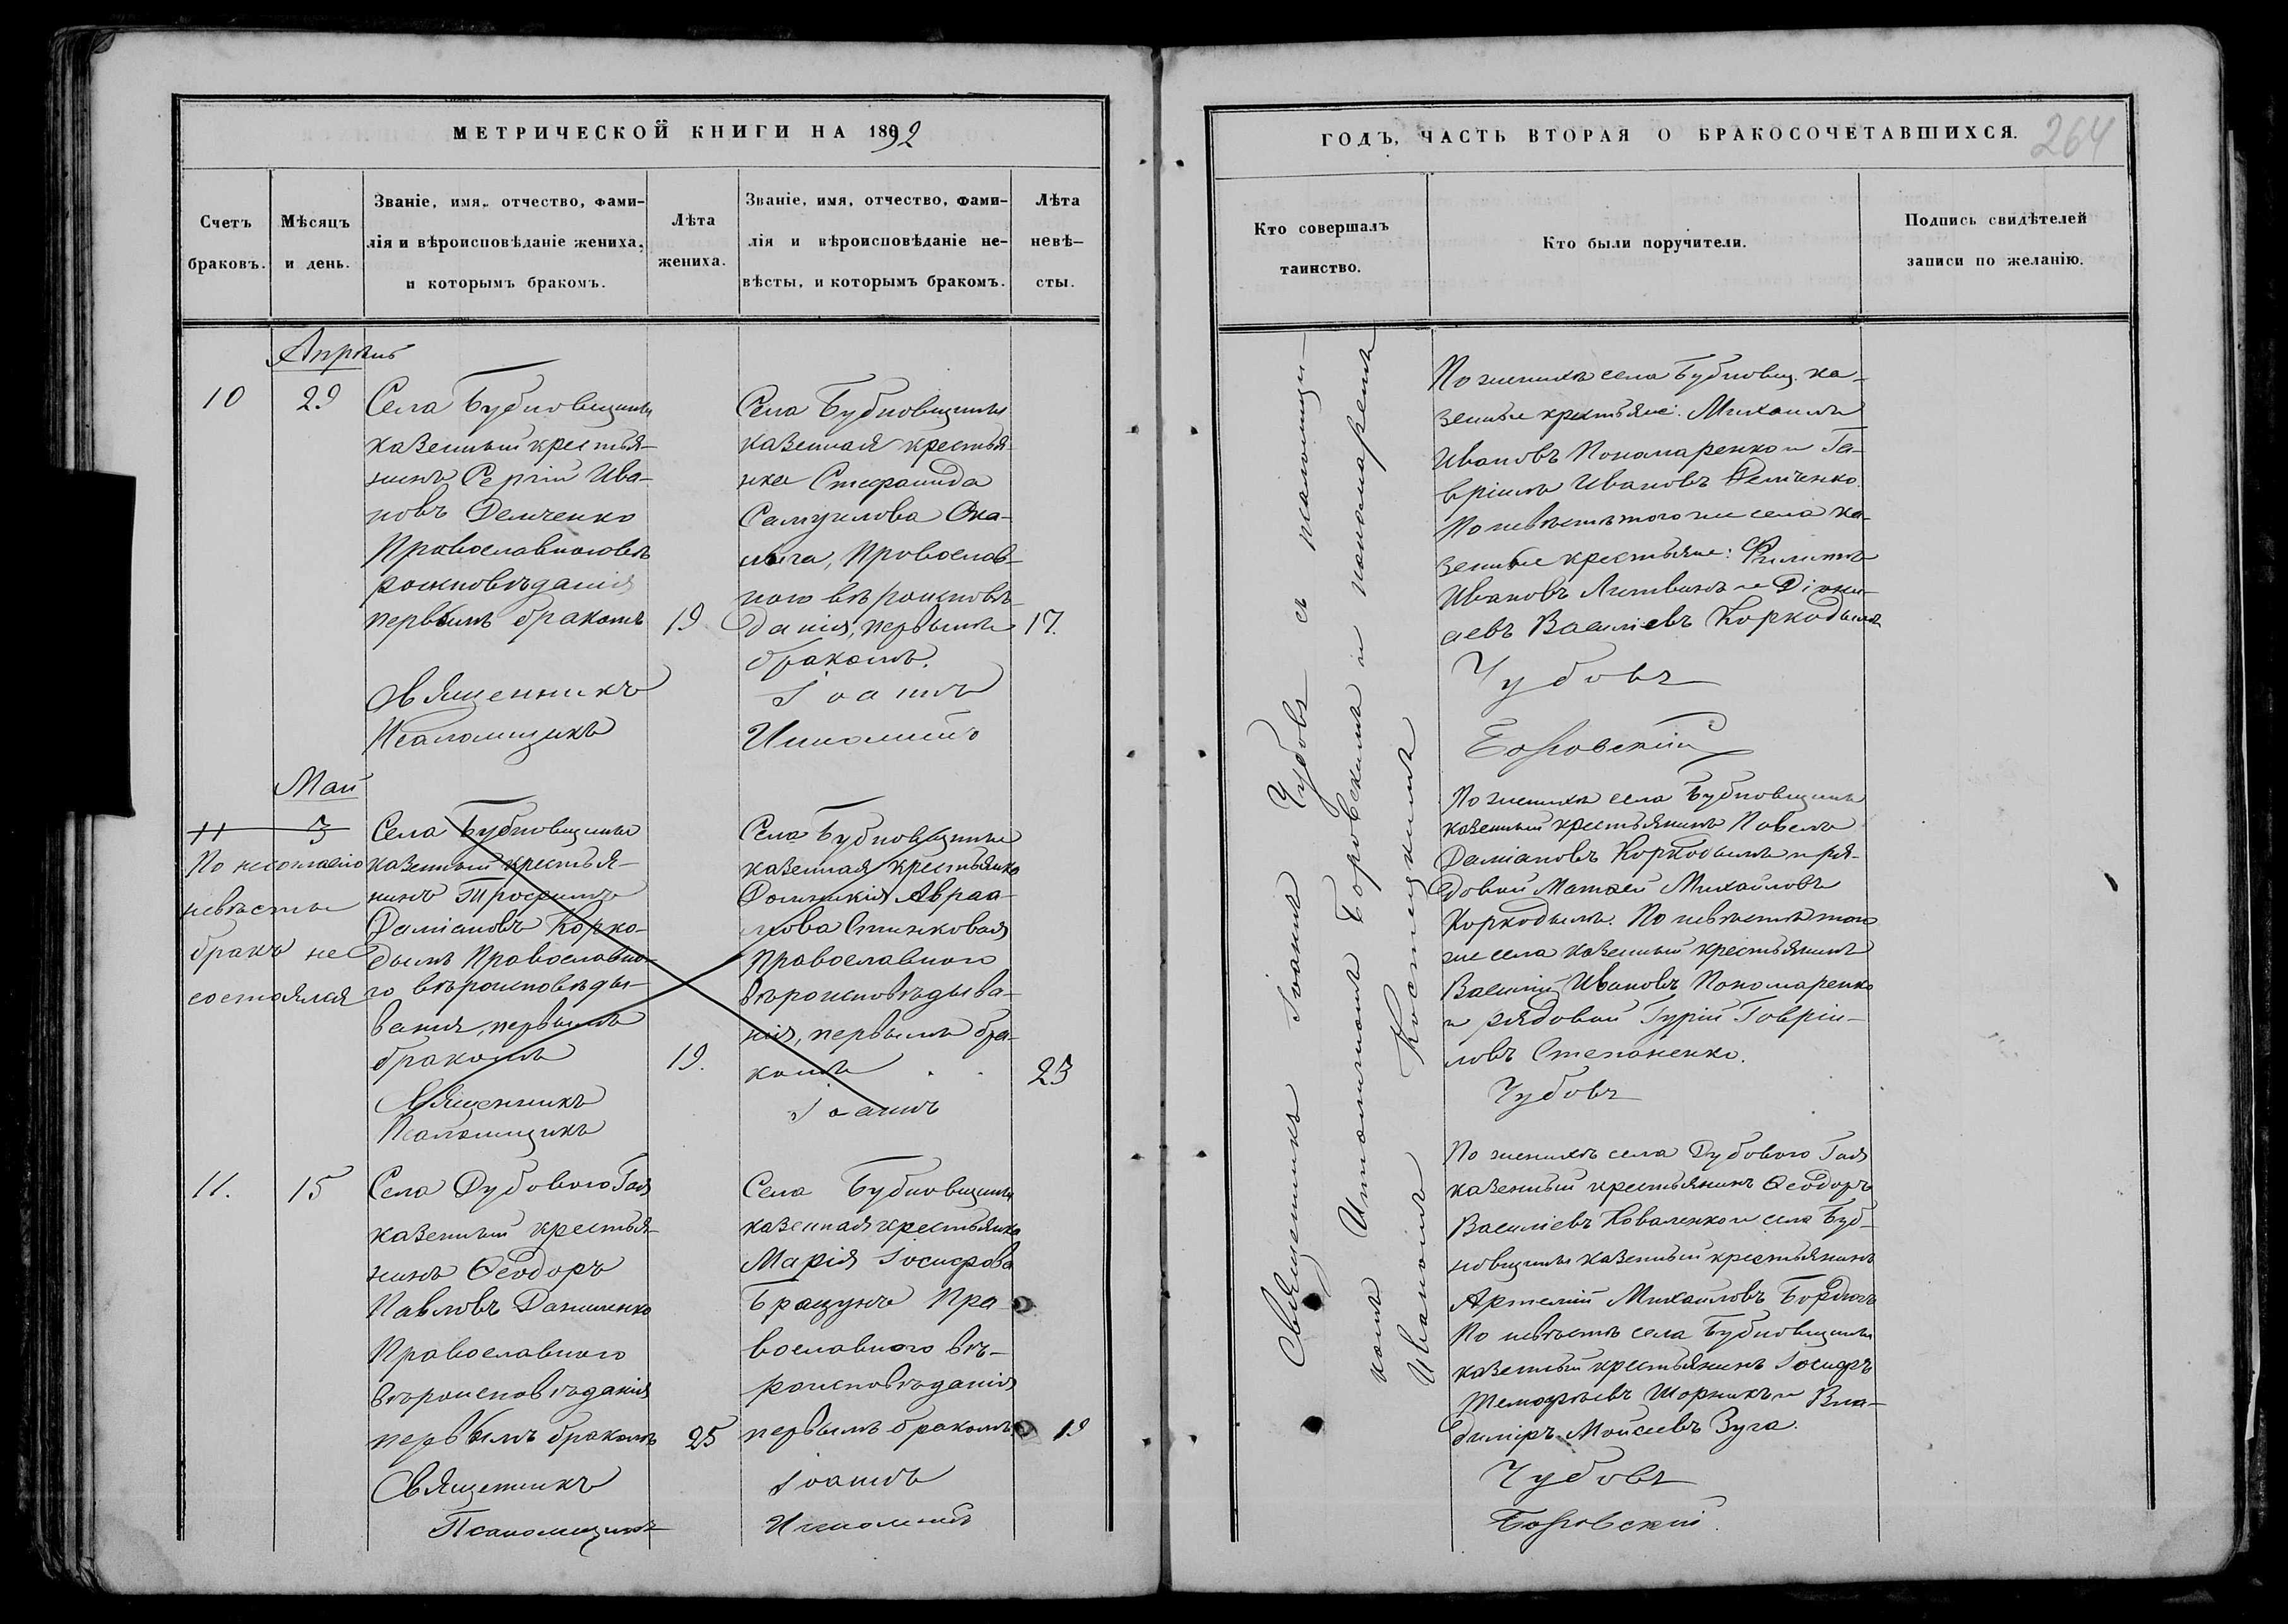 МЕТРИЧЕСКОЙ КНИГИ НА 1892
Счетъ браковъ.
Мѣсяцъ и день.
Званіе, имя, отчество, фами-
лія и вѣроисповѣданіе жениха,
и которымъ бракомъ.
Лѣта
жениха.
Званіе, имя, отчество, фами-
лія и вѣроисповѣданіе не-
вѣсты, и которымъ бракомъ.
Лѣта
невѣ-
сты.
Апрѣль
10
29
Села Бубновщины
казенный крестья-
нинъ Сергій Ива-
новъ Демченко
Православнаго вѣ
роисповѣданія
первымъ бракомъ
19
Священникъ
Псаломщикъ
Села Бубновщины
казенная крестья-
нка Стефанида
Самуилова
Православ-
наго вѣроисповѣ-
данія, первымъ
бракомъ.
17.
Іоаннъ
Ипполитъ
Май
11
3
По несогласію
невѣсты
бракъ не
состоялся
Села Бубновщины
казенный крестья-
нинъ Трофимъ
Даміановъ Корко-
дымъ Православна-
го вѣроисповѣды-
ванія, первымъ
бракомъ
19.
Священникъ
Псаломщикъ
Села Бубновщины
казенная крестьянка
Домникія Авраа-
мова
Православнаго
вѣроисповѣдыва-
нія, первымъ бра-
комъ
23
Іоаннъ
11.
15
Села Дубового Гая
казенный крестья-
нинъ Ѳеодоръ
Павловъ Даниленко
Православнаго
вѣроисповѣданія
первымъ бракомъ
25
Священникъ
Псаломщикъ
Села Бубновщины
казенная крестьянка
Марія Іосифова
Брацунъ Пра-
вославнаго вѣ-
роисповѣданія
первымъ бракомъ
19
Іоаннъ
Ипполитъ
ГОДЪ, ЧАСТЬ ВТОРАЯ О БРАКОСОЧЕТАВШИХСЯ.
264
Кто совершалъ
таинство.
Кто были поручители.
Подпись свидѣтелей
записи по желанію.
Священникъ Іоаннъ Чубовъ съ псаломщи-
комъ Ипполитомъ Боровскимъ и пономаремъ
Иваномъ Костецкимъ
По женихѣ села Бубновщ. ка-
зенные крестьяне: Михаилъ
Ивановъ Пономаренко и Га-
вріилъ Ивановъ Демченко.
По невѣстѣ того же села ка-
зенные крестьяне: Филиппъ
Ивановъ Литвинъ и
Василіевъ Коркодымъ
Чубовъ
Боровскій
По женихѣ села Бубновщины
казенный крестьянинъ Павелъ
Даміановъ Коркодымъ и ря-
довой Матѳей Михайловъ
Коркодымъ. По невѣстѣ того
же села казенный крестьянинъ
Василій Ивановъ Пономаренко
и рядовой Гурій Гавріи-
ловъ Степаненко.
Чубовъ
По женихѣ села Дубового Гая
казенный крестьянинъ Ѳеодоръ
Василіевъ Коваленко и села Буб-
новщины казенный крестьянинъ
Артемій Михайловъ
По невѣстѣ села Бубновщины
казенный крестьянинъ Іосифъ
Тимофѣевъ Шорникъ и Вла-
диміръ Мойсеевъ Зуга.
Чубовъ
Боровскій.